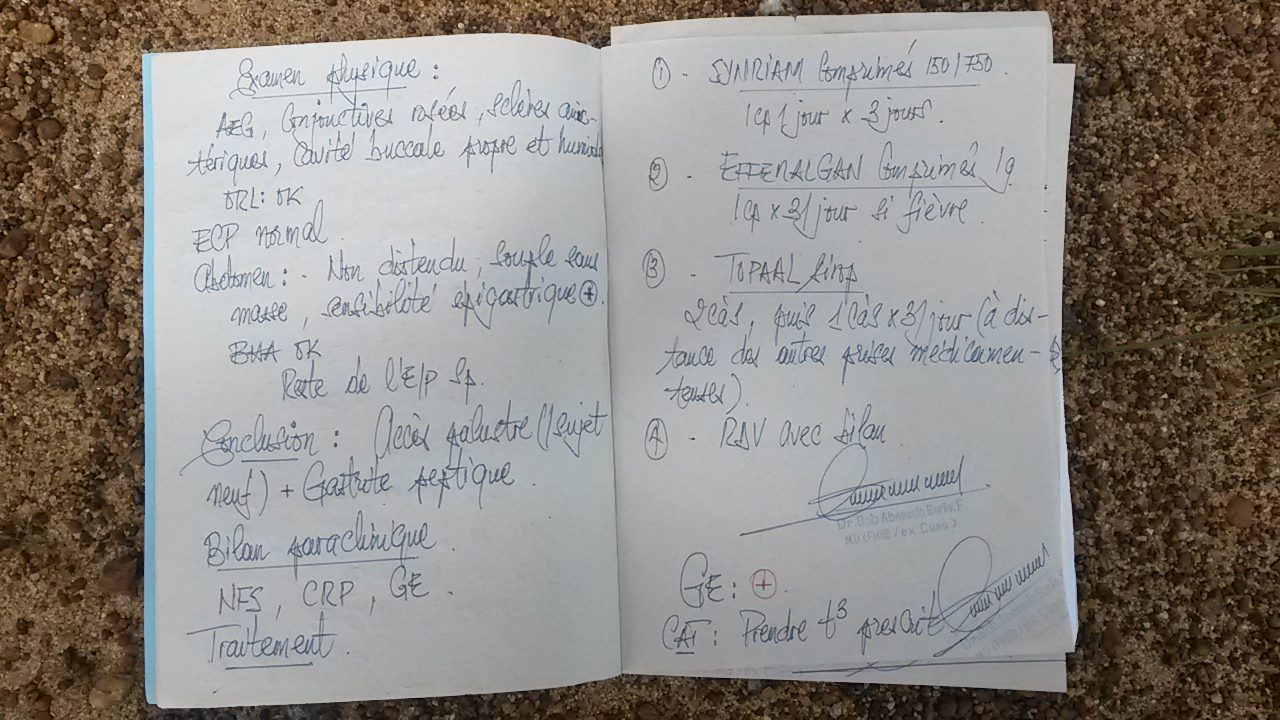 Examen physique :
AEG, Conjonctives rosées, sclères anic-
tériques, Cavité buccale propre et humide
ORL: OK
ECP normal
Abdomen : - Non distendu, souple sans
masse, sensibilité épigastrique ⊕.
BHA OK
Reste de l'E/P Sp.
Conclusion : Accès palustre (/sujet
neuf) + Gastrite peptique.
Bilan paraclinique.
NFS, CRP, GE.
Traitement.
① - SYNRIAM Comprimés 150/750.
1cp/jour x 3 jours.
② - EFFERALGAN Comprimés 1g
1cp x 3/jour si fièvre.
③ - TOPAAL sirop
2 càs, puis 1 càs x 3/jour (à dis-
tance des autres prises médicamen-
teuses).
④ - RDV avec bilan.
Dr. Bob
M.D (FMSB / ex Cuss)
GE: ⊕.
CAT: Prendre t3 prescrit